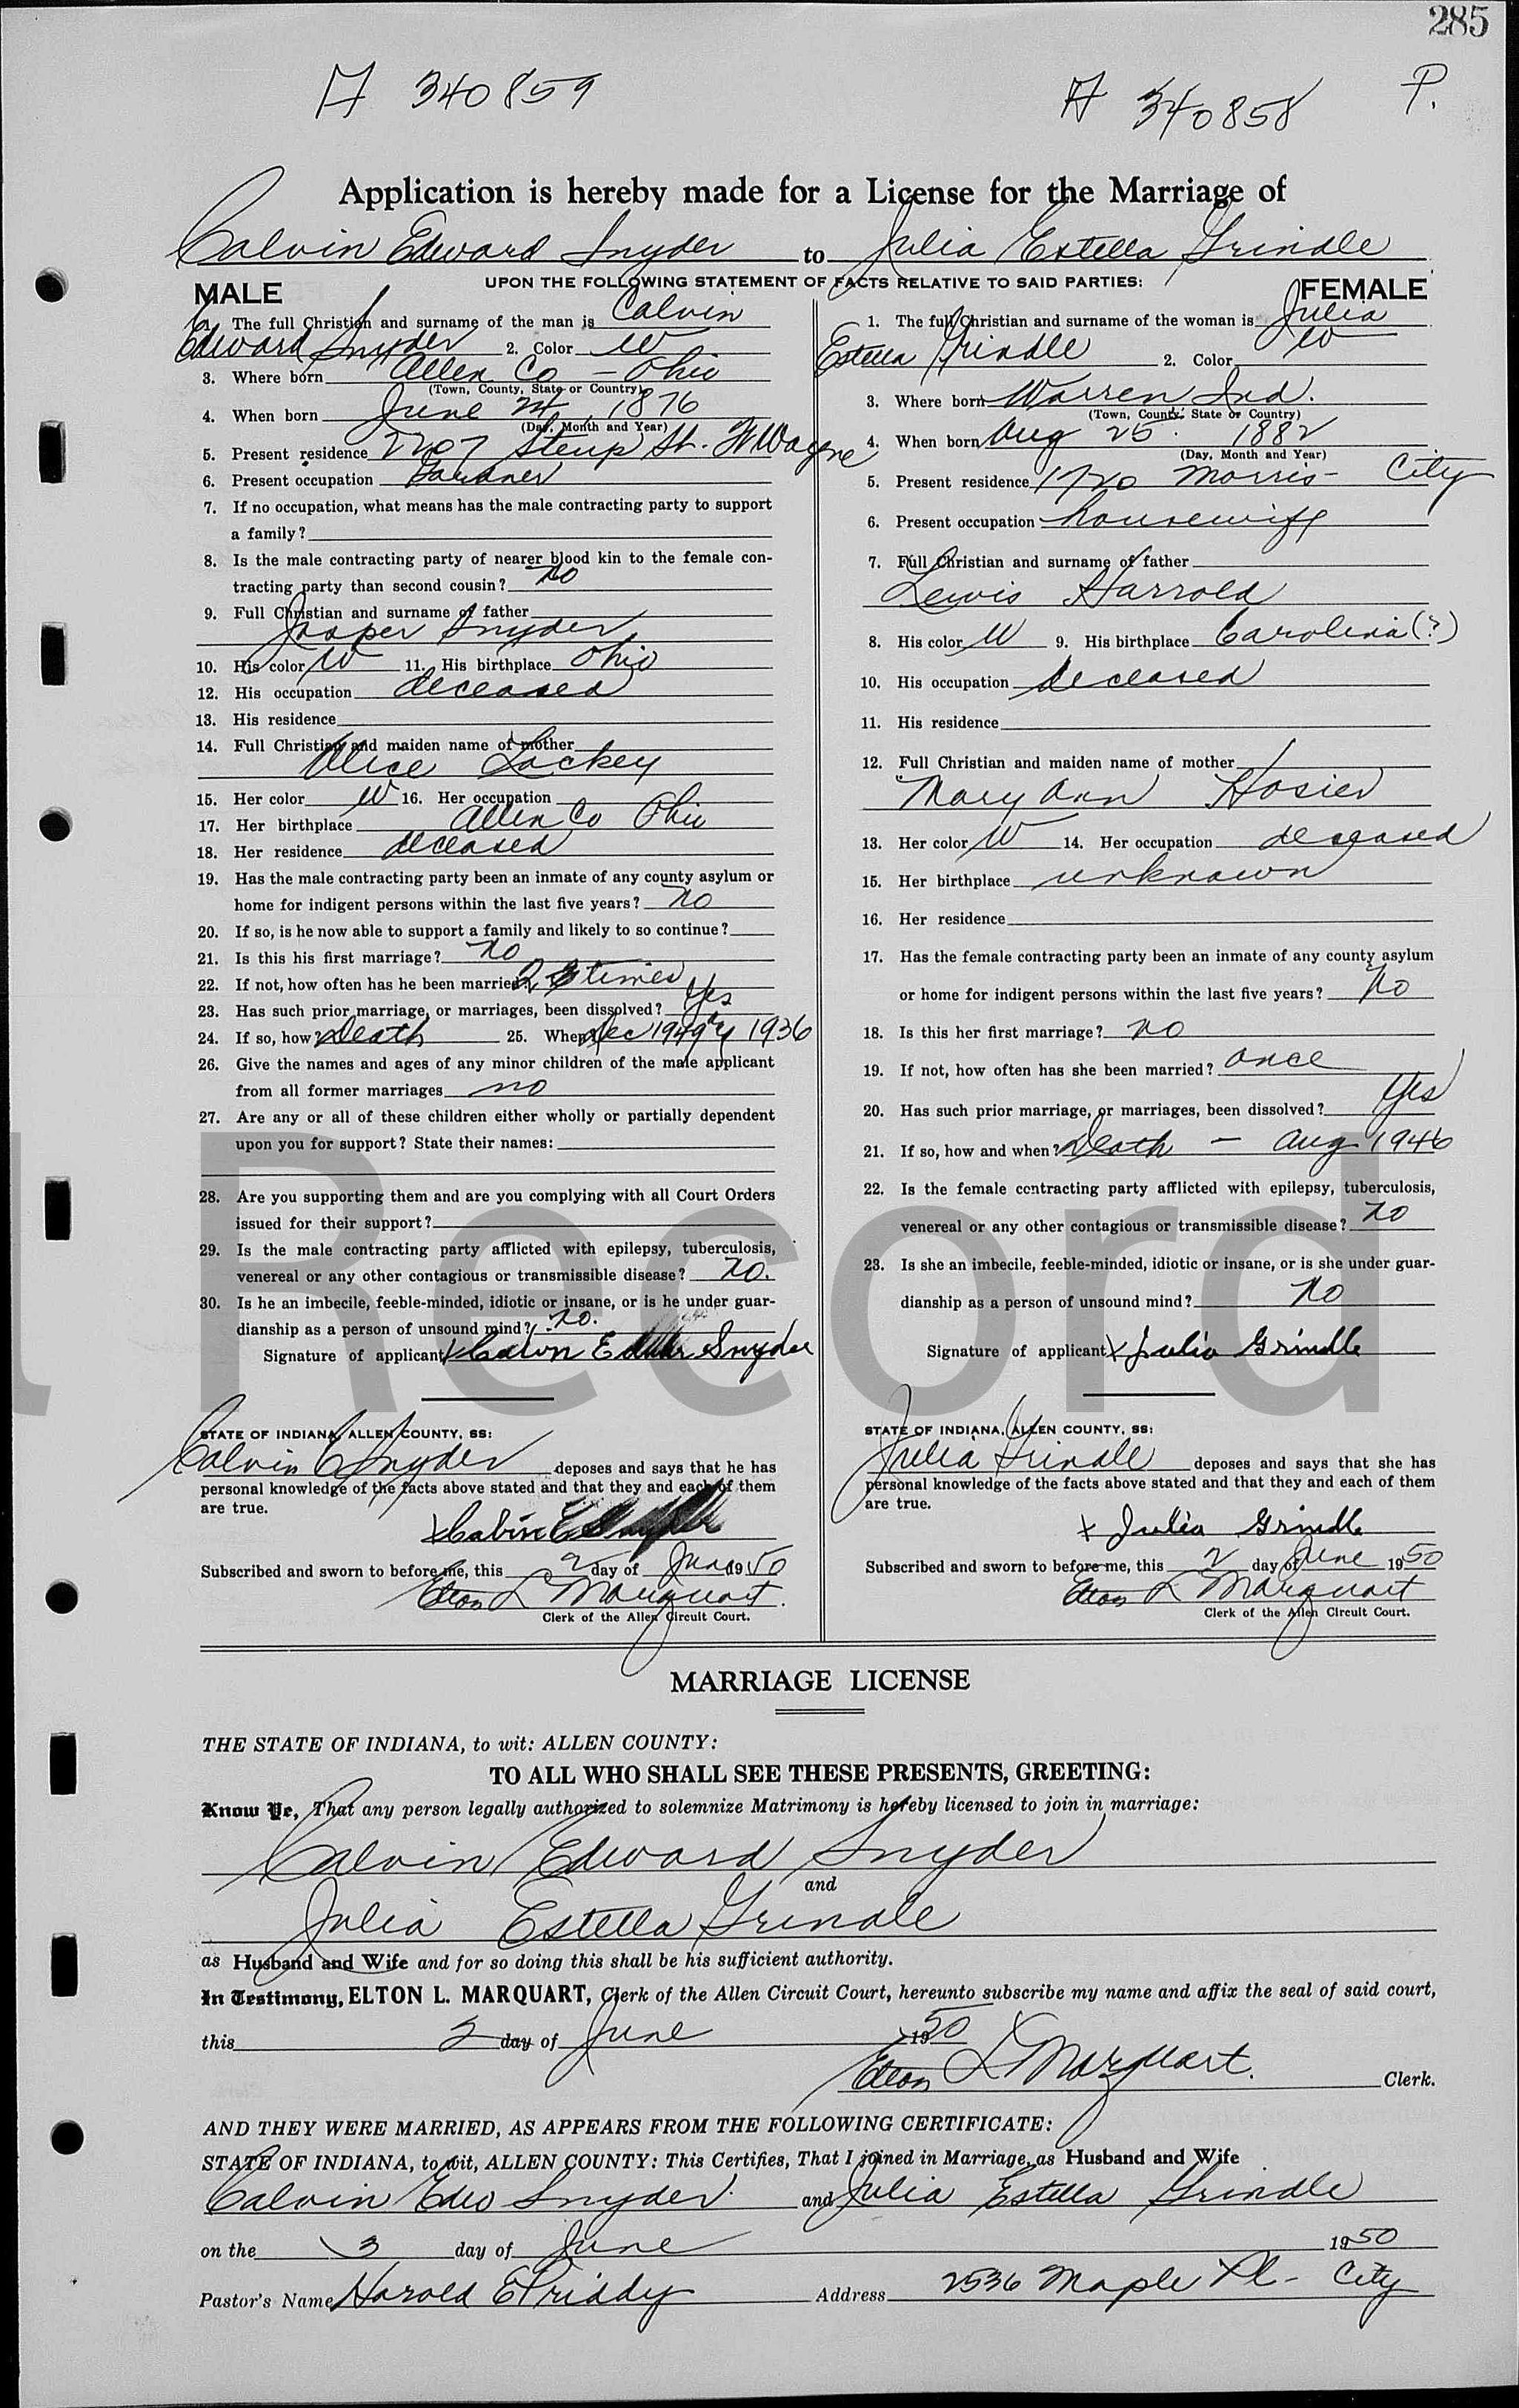 285
A 340859
A 340858 P.
Application is hereby made for a License for the Marriage of
Calvin Edward Snyder to Julia Estella Grindle
UPON THE FOLLOWING STATEMENT OF FACTS RELATIVE TO SAID PARTIES:
MALE
1. The full Christian and surname of the man is Calvin
Edward Snyder 2. Color W
3. Where born Allen Co – Ohio
(Town, County, State or Country)
4. When born June 24, 1876
(Day, Month and Year)
5. Present residence 2207 Steup St. Ft Wayne
6. Present occupation Gardner
7. If no occupation, what means has the male contracting party to support
a family?
8. Is the male contracting party of nearer blood kin to the female con-
tracting party than second cousin? No
9. Full Christian and surname of father
Jasper Snyder
10. His color W 11. His birthplace Ohio
12. His occupation deceased
13. His residence
14. Full Christian and maiden name of mother
Alice Lackey
15. Her color W 16. Her occupation
17. Her birthplace Allen Co Ohio
18. Her residence deceased
19. Has the male contracting party been an inmate of any county asylum or
home for indigent persons within the last five years? No
20. If so, is he now able to support a family and likely to so continue?
21. Is this his first marriage? No
22. If not, how often has he been married? 2 times
23. Has such prior marriage, or marriages, been dissolved? Yes
24. If so, how? Death 25. When? Dec 1949 & 1936
26. Give the names and ages of any minor children of the male applicant
from all former marriages no
27. Are any or all of these children either wholly or partially dependent
upon you for support? State their names:
28. Are you supporting them and are you complying with all Court Orders
issued for their support?
29. Is the male contracting party afflicted with epilepsy, tuberculosis,
venereal or any other contagious or transmissible disease? No.
30. Is he an imbecile, feeble-minded, idiotic or insane, or is he under guar-
dianship as a person of unsound mind? No.
Signature of applicant x Calvin Snyder
STATE OF INDIANA, ALLEN COUNTY, SS:
Calvin E Snyder deposes and says that he has
personal knowledge of the facts above stated and that they and each of them
are true.
x Calvin E Snyder
Subscribed and sworn to before me, this 2 day of June 1950
Elton L Marquart.
Clerk of the Allen Circuit Court.
FEMALE
1. The full Christian and surname of the woman is Julia
Estella Grindle 2. Color W
3. Where born Warren Ind.
(Town, County, State or Country)
4. When born Aug 25. 1882
(Day, Month and Year)
5. Present residence 1720 Morris – City
6. Present occupation housewife
7. Full Christian and surname of father
Lewis Harrold
8. His color W 9. His birthplace Carolina (?)
10. His occupation deceased
11. His residence
12. Full Christian and maiden name of mother
Mary Ann Hosier
13. Her color W 14. Her occupation deceased
15. Her birthplace unknown
16. Her residence
17. Has the female contracting party been an inmate of any county asylum
or home for indigent persons within the last five years? No
18. Is this her first marriage? no
19. If not, how often has she been married? once
20. Has such prior marriage, or marriages, been dissolved? Yes
21. If so, how and when? Death – Aug 1946
22. Is the female contracting party afflicted with epilepsy, tuberculosis,
venereal or any other contagious or transmissible disease? No
23. Is she an imbecile, feeble-minded, idiotic or insane, or is she under guar-
dianship as a person of unsound mind? No
Signature of applicant x Julia Grindle
STATE OF INDIANA, ALLEN COUNTY, SS:
Julia Grindle deposes and says that she has
personal knowledge of the facts above stated and that they and each of them
are true.
x Julia Grindle
Subscribed and sworn to before me, this 2 day of June 1950
Elton L Marquart
Clerk of the Allen Circuit Court.
Record
MARRIAGE LICENSE
THE STATE OF INDIANA, to wit: ALLEN COUNTY:
TO ALL WHO SHALL SEE THESE PRESENTS, GREETING:
Know Ye, That any person legally authorized to solemnize Matrimony is hereby licensed to join in marriage:
Calvin Edward Snyder
and
Julia Estella Grindle
as Husband and Wife and for so doing this shall be his sufficient authority.
In Testimony, ELTON L. MARQUART, Clerk of the Allen Circuit Court, hereunto subscribe my name and affix the seal of said court,
this 2 day of June 1950
Elton L Marquart. Clerk.
AND THEY WERE MARRIED, AS APPEARS FROM THE FOLLOWING CERTIFICATE:
STATE OF INDIANA, to wit, ALLEN COUNTY: This Certifies, That I joined in Marriage, as Husband and Wife
Calvin Edw Snyder and Julia Estella Grindle
on the 3 day of June 1950
Pastor's Name Harold E Priddy Address 2536 Maple Pl – City